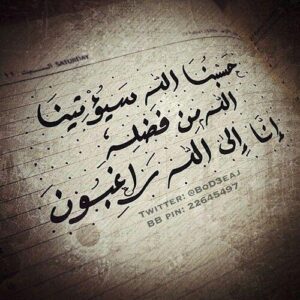 SATURDAY السبت
حسبنا الله سيؤتينا
الله من فضله
إنا إلى الله راغبون
TWITTER: @BOD3EAJ
BB PIN: 22645497